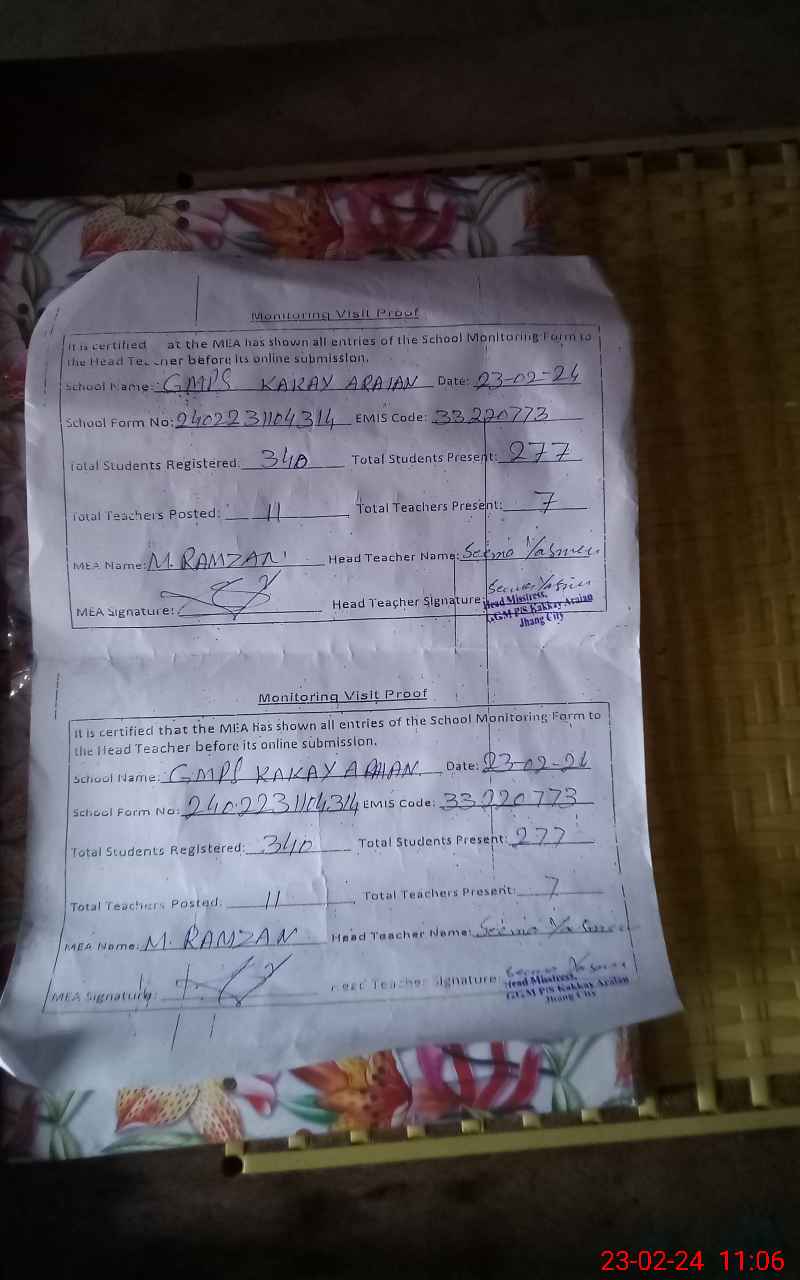 Monitoring Visit Proof
It is certified at the MEA has shown all entries of the School Monitoring Form to
the Head Teacher before its online submission.
School Name: GMPS KAKAY ARAIAN Date: 23-02-24
School Form No: 2402231104314 EMIS Code: 33220773
Total Students Registered: 340 Total Students Present: 277
Total Teachers Posted: 11 Total Teachers Present: 7
MEA Name: M. RAMZAN Head Teacher Name: Seemo Yasmen
MEA Signature: Head Teacher Signature:
Head Misstress,
G.G.M P/S Kakkay Araian
Jhang City
Monitoring Visit Proof
It is certified that the MEA has shown all entries of the School Monitoring Form to
the Head Teacher before its online submission.
School Name: GMPS KAKAY ARAIAN Date: 23-02-24
School Form No: 2402231104314 EMIS Code: 33220773
Total Students Registered: 340 Total Students Present: 277
Total Teachers Posted: 11 Total Teachers Present: 7
MEA Name: M. RAMZAN Head Teacher Name:
MEA Signature: Head Teacher Signature:
Head Misstress,
G.G.M P/S Kakkay Araian
Jhang City
23-02-24 11:06